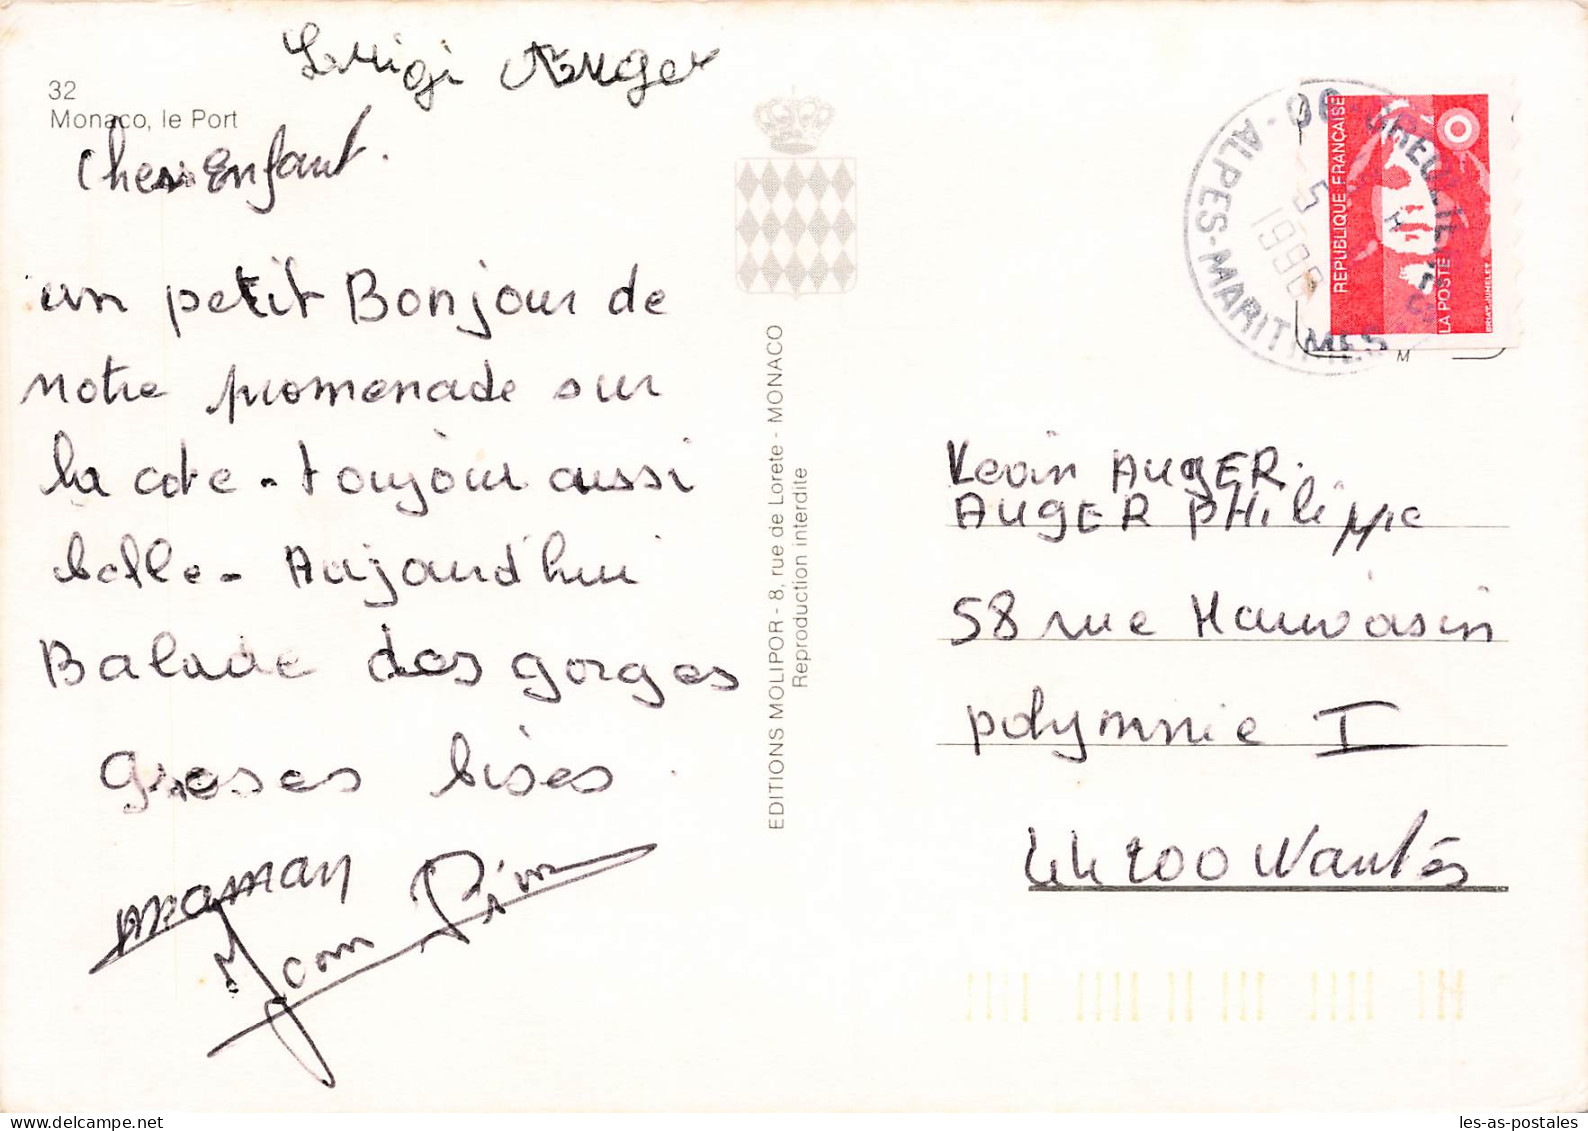 Luigi Auger
32
Monaco, le Port
Cher Enfant.
un petit Bonjour de
notre promenade sur
la cote - toujour aussi
belle - Aujourd'hui
Balade des gorges
groses bises
maman
EDITIONS MOLIPOR - 8, rue de Lorete - MONACO
Reproduction interdite
06
ALPES-MARITIMES
5
1996
REPUBLIQUE FRANÇAISE
LA POSTE
BRIAT-JUMELET
M
Kevin AUGER.
AUGER PHILIPPE
58 rue Mauvoisin
polymnie I
44200 Nantes
les-as-postales